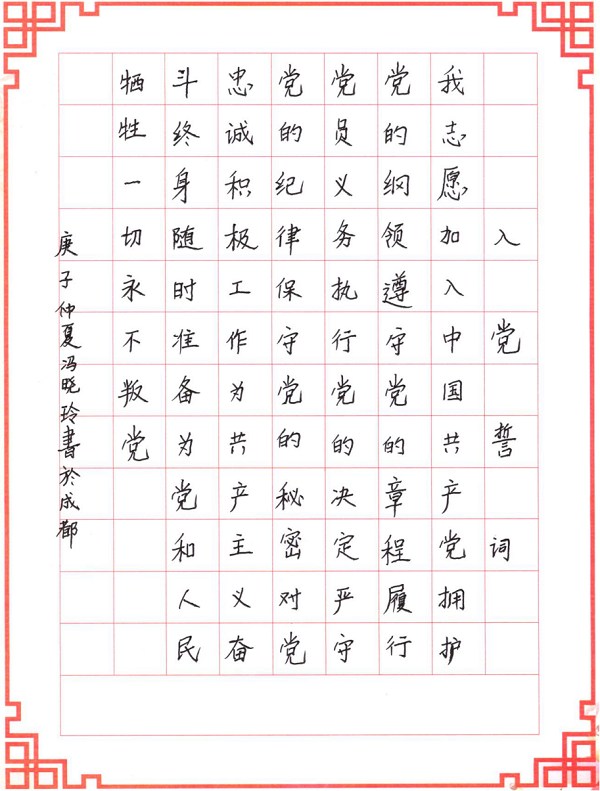 入党誓词
我志愿加入中国共产党拥护
党的纲领遵守党的章程履行
党员义务执行党的决定严守
党的纪律保守党的秘密对党
忠诚积极工作为共产主义奋
斗终身随时准备为党和人民
牺牲一切永不叛党
庚子仲夏冯晓玲書於成都